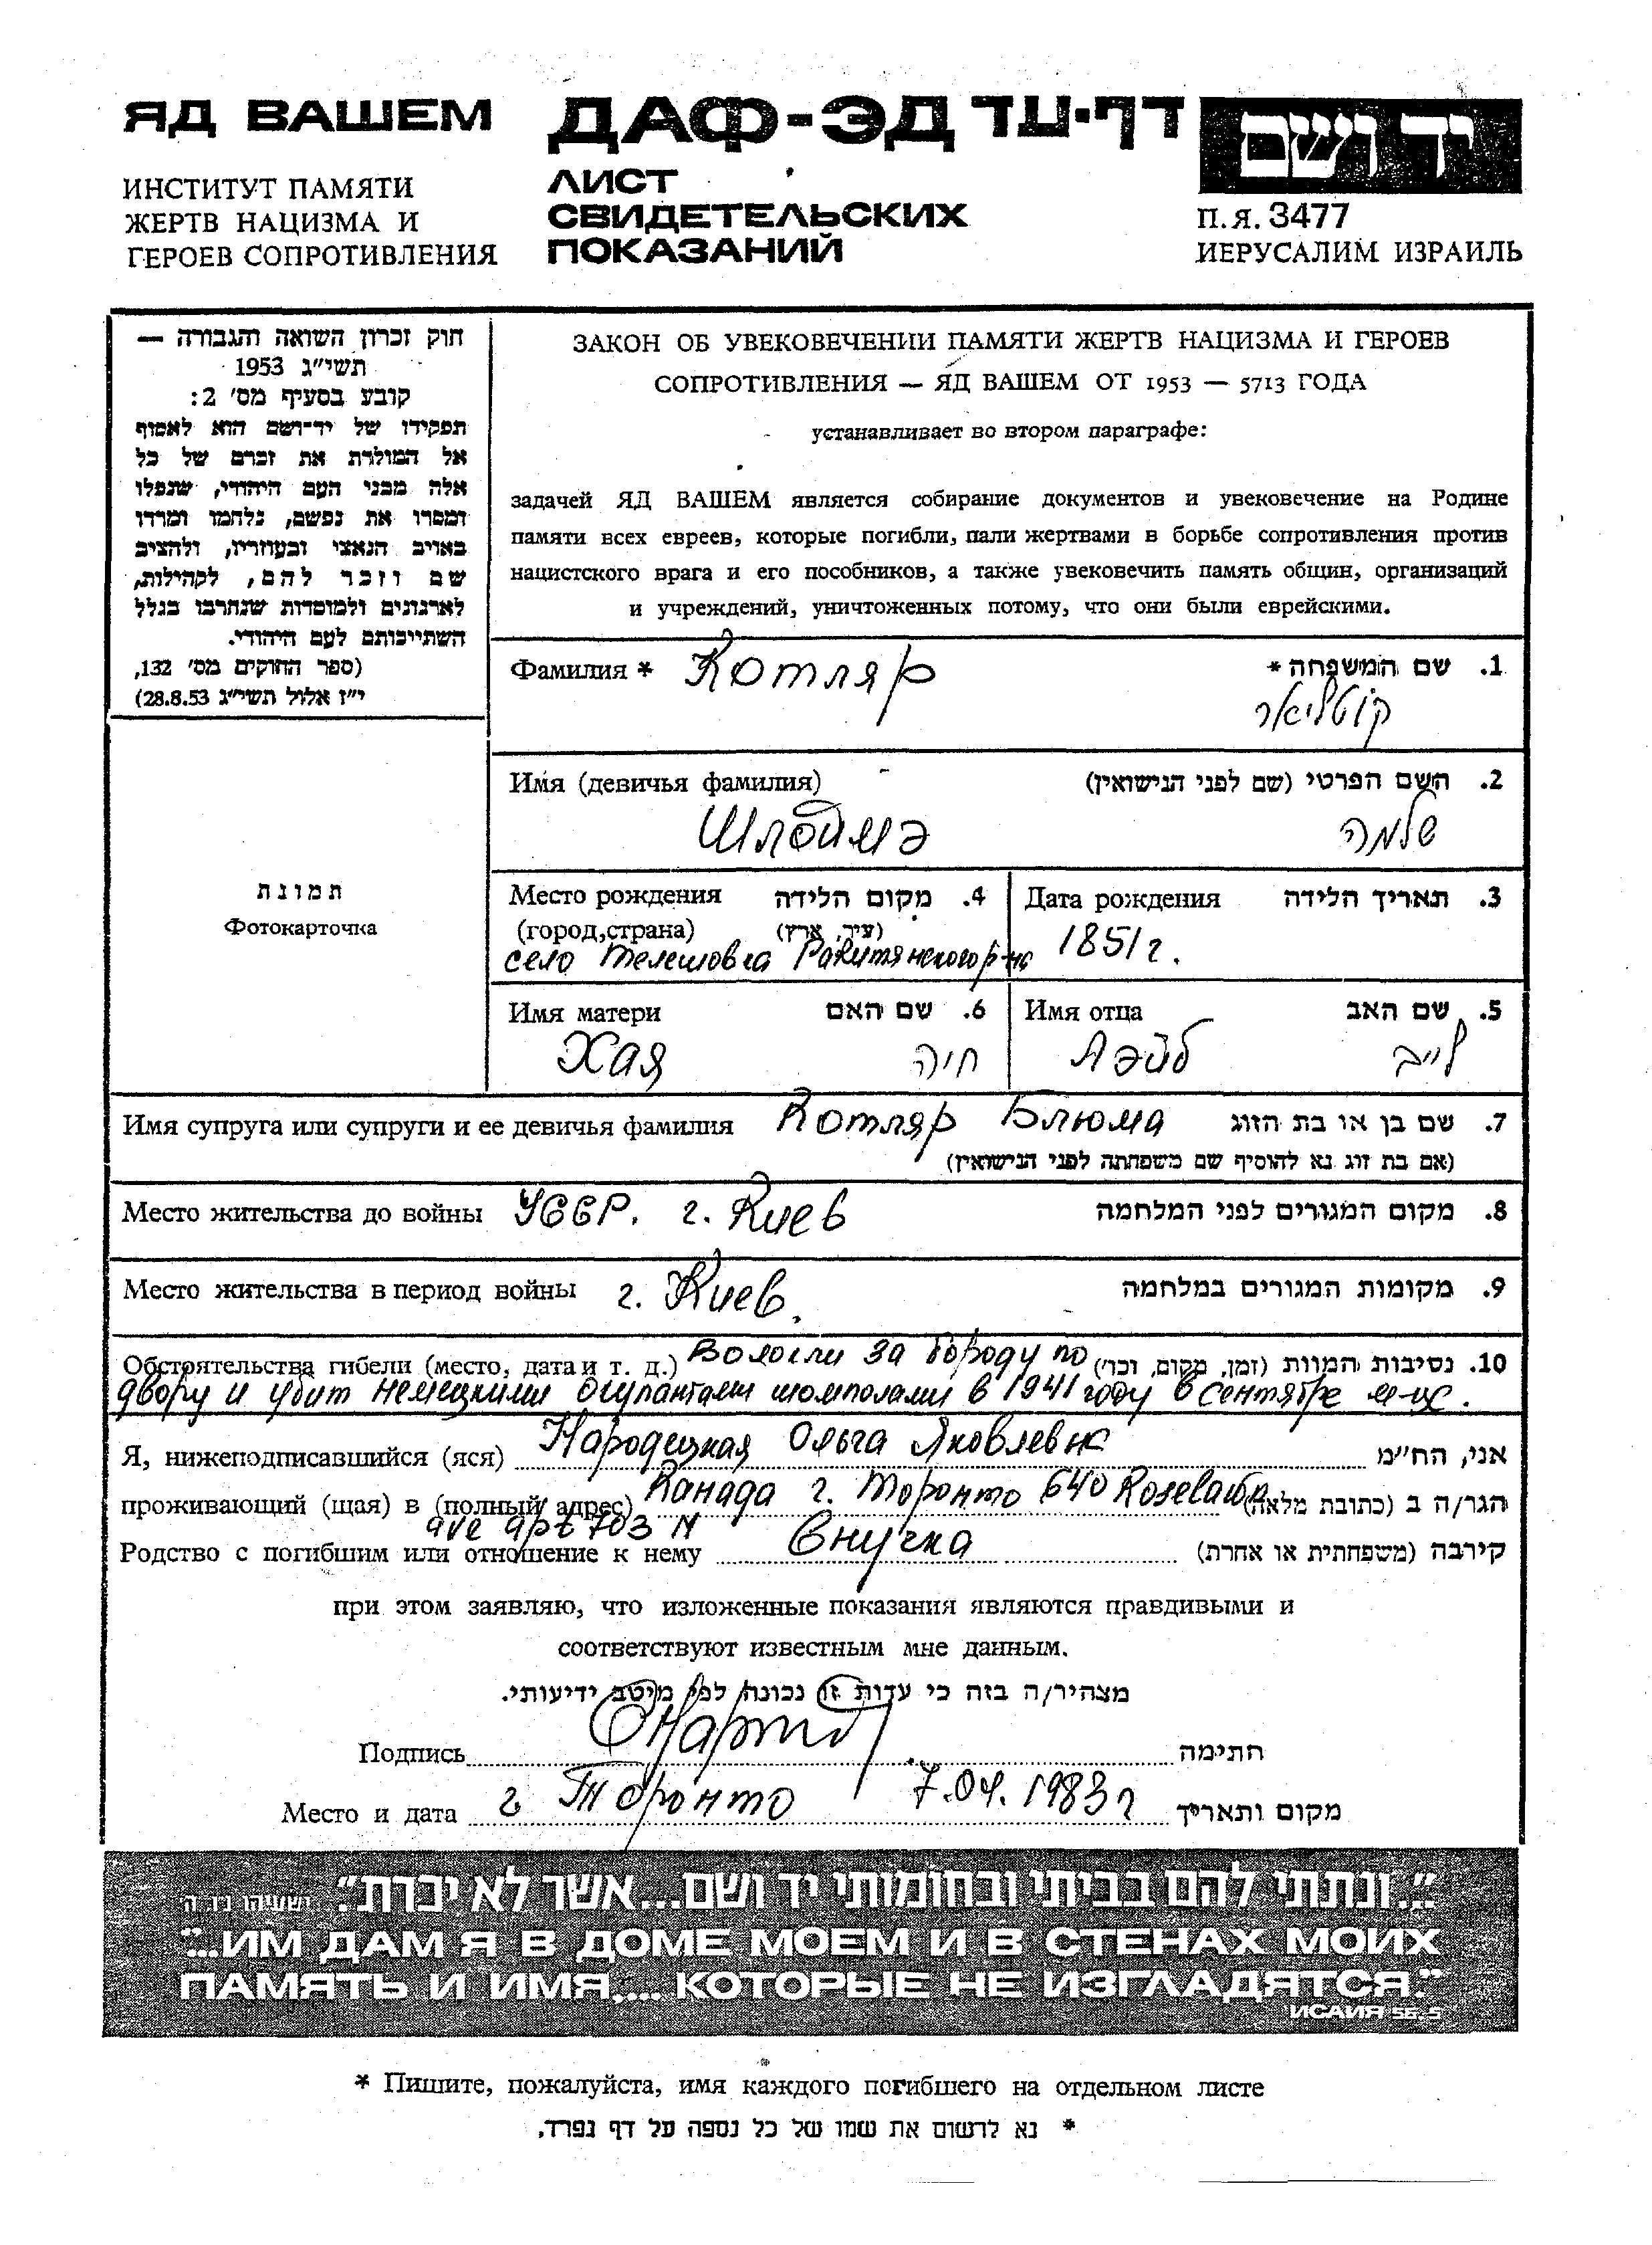 ЯД ВАШЕМ
ИНСТИТУТ ПАМЯТИ
ЖЕРТВ НАЦИЗМА И
ГЕРОЕВ СОПРОТИВЛЕНИЯ
ДАФ-ЭД דף-עד
ЛИСТ
СВИДЕТЕЛЬСКИХ
ПОКАЗАНИЙ
יד ושם
П.Я. 3477
ИЕРУСАЛИМ ИЗРАИЛЬ
חוק זכרון השואה והגבורה —
תשי״ג 1953
קובע בסעיף מס׳ 2:
תפקידו של יד־ושם הוא לאסוף
אל המולדת את זכרם של כל
אלה מבני העם היהודי, שנפלו
ומסרו את נפשם, נלחמו ומרדו
באויב הנאצי ובעוזריו, ולהציב
שם וזכר להם, לקהילות,
לארגונים ולמוסדות שנחרבו בגלל
השתייכותם לעם היהודי.
(ספר החוקים מס׳ 132,
י״ז אלול תשי״ג 28.8.53)
ЗАКОН ОБ УВЕКОВЕЧЕНИИ ПАМЯТИ ЖЕРТВ НАЦИЗМА И ГЕРОЕВ
СОПРОТИВЛЕНИЯ — ЯД ВАШЕМ ОТ 1953 — 5713 ГОДА
устанавливает во втором параграфе:
задачей ЯД ВАШЕМ является собирание документов и увековечение на Родине
памяти всех евреев, которые погибли, пали жертвами в борьбе сопротивления против
нацистского врага и его пособников, а также увековечить память общин, организаций
и учреждений, уничтоженных потому, что они были еврейскими.
Фамилия * Котляр 1. שם המשפחה *
קוטליאר
Имя (девичья фамилия) 2. השם הפרטי (שם לפני הנישואין)
Шлоймэ שלמה
תמונת
Фотокарточка
Место рождения 4. מקום הלידה
(город,страна) (עיר, ארץ)
село Телешовка Ракитянского р-на
Дата рождения 3. תאריך הלידה
1851 г.
Имя матери 6. שם האם
Хая חיה
Имя отца 5. שם האב
Лэйб לייב
Имя супруга или супруги и ее девичья фамилия Котляр Блюма 7. שם בן או בת הזוג
(אם בת זוג נא להוסיף שם משפחתה לפני הנישואין)
Место жительства до войны УССР. г. Киев 8. מקום המגורים לפני המלחמה
Место жительства в период войны г. Киев. 9. מקומות המגורים במלחמה
Обстоятельства гибели (место, дата и т. д.) Волокли за бороду по 10. נסיבות המוות (זמן, מקום, וכו׳)
двору и убит немецкими окупантами шомполами в 1941 году в сентябре м-це.
Я, нижеподписавшийся (яся) Народецкая Ольга Яковлевна אני, הח״מ
проживающий (щая) в (полный адрес) Канада г. Торонто 640 Roselawn הגר/ה ב (כתובת מלאה)
ave apt 703 N
Родство с погибшим или отношение к нему внучка קירבה (משפחתית או אחרת)
при этом заявляю, что изложенные показания являются правдивыми и
соответствуют известным мне данным.
מצהיר/ה בזה כי עדות זו נכונה לפי מיטב ידיעותי.
Подпись חתימה
Место и дата г. Торонто 7.04.1983 г מקום ותאריך
״..ונתתי להם בביתי ובחומותי יד ושם...אשר לא יכרת״. ישעיהו נ״ו ה׳
"...ИМ ДАМ Я В ДОМЕ МОЕМ И В СТЕНАХ МОИХ
ПАМЯТЬ И ИМЯ.... КОТОРЫЕ НЕ ИЗГЛАДЯТСЯ."
ИСАИЯ 56.5
* Пишите, пожалуйста, имя каждого погибшего на отдельном листе
* נא לרשום את שמו של כל נספה על דף נפרד.